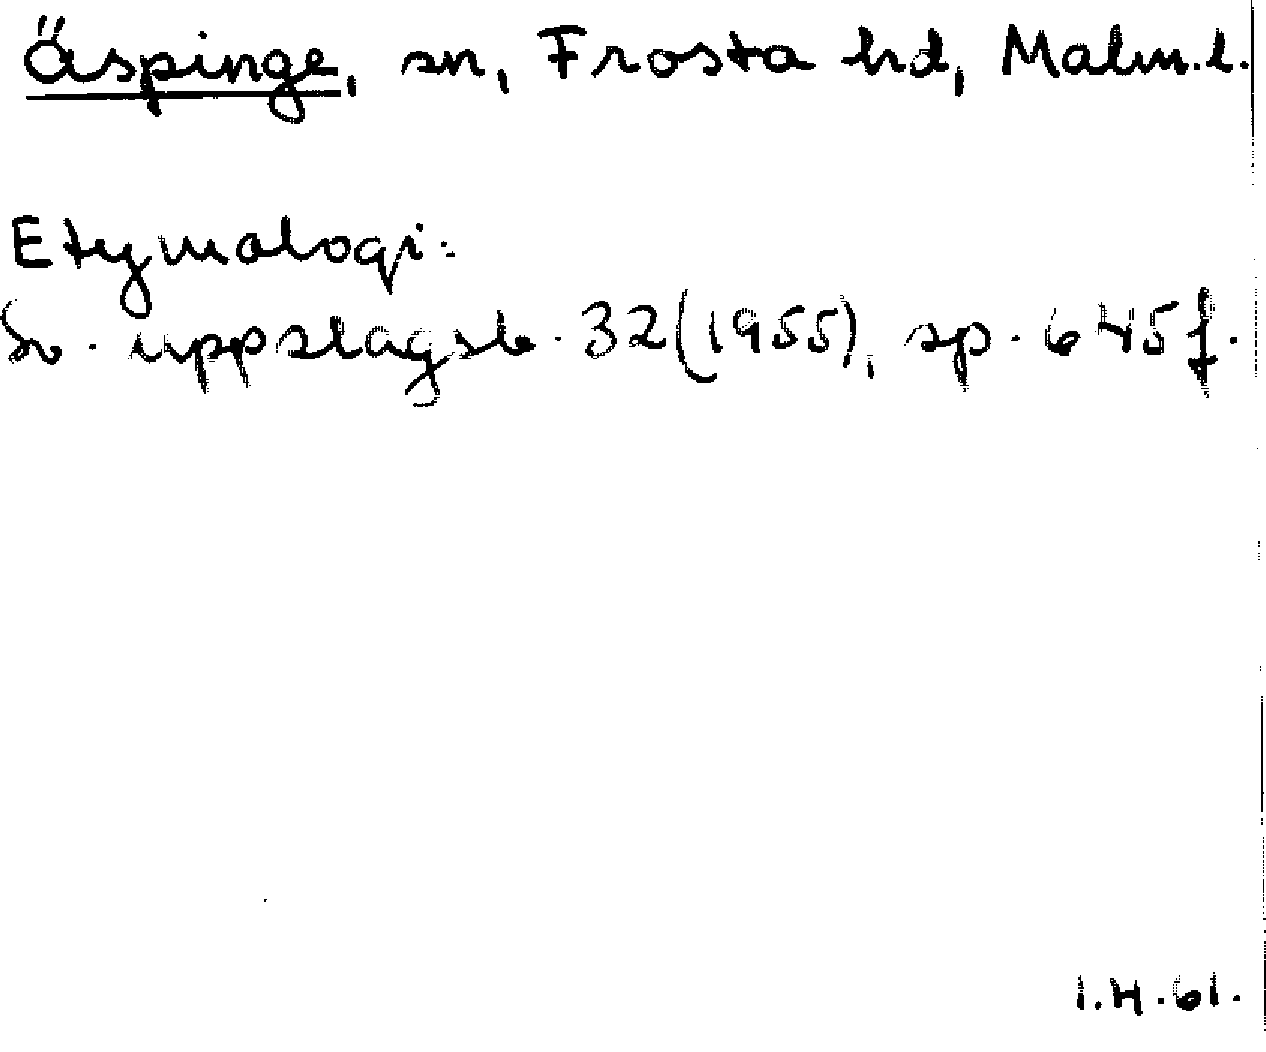 Äspinge, sn, Frosta hd, Malm.l.
Etymologi:
Sv. uppslagsb. 32(1955), sp. 645f.
I.H.61.